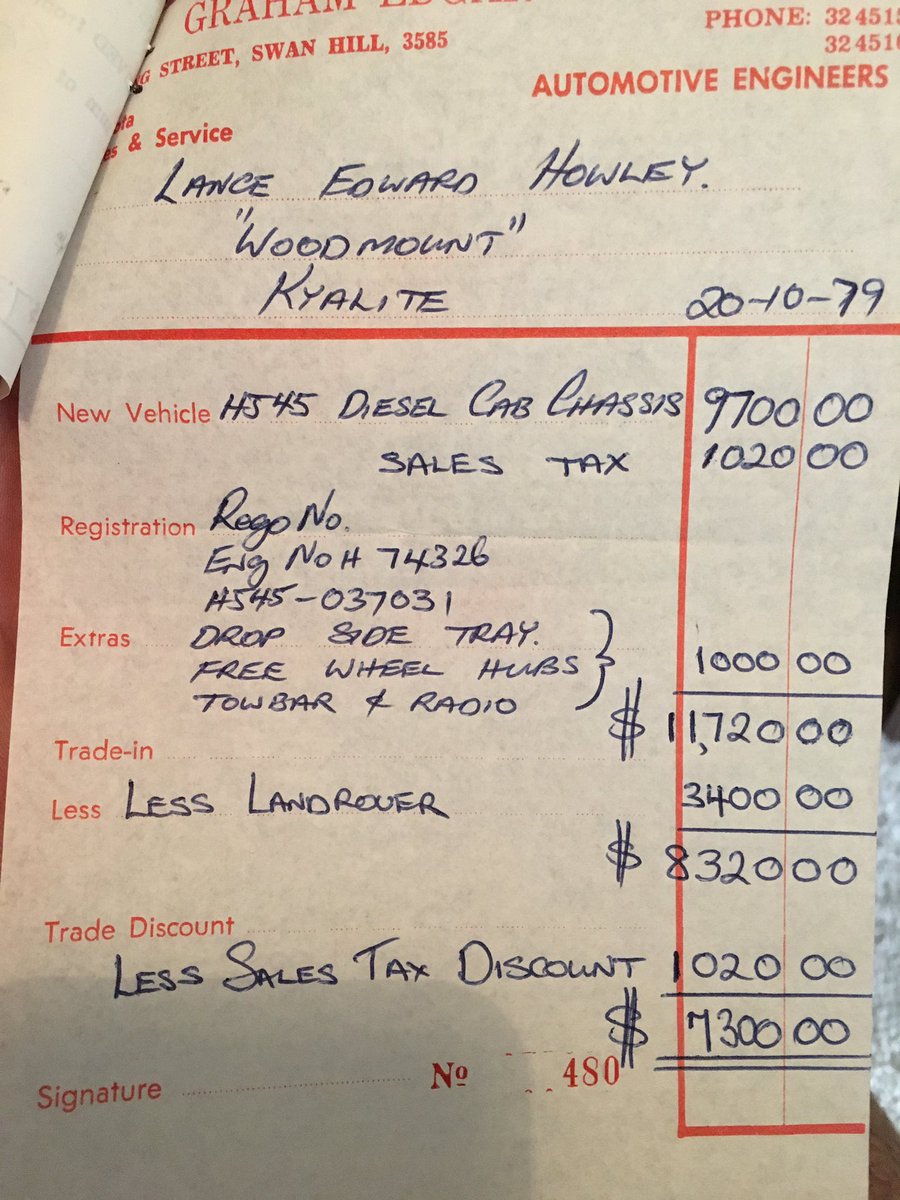 GRAHAM
PHONE: 32 451
STREET, SWAN HILL, 3585
32 451
AUTOMOTIVE ENGINEERS
& Service
LANCE EDWARD HOWLEY.
"WOODMOUNT"
KYALITE 20-10-79
New Vehicle HJ45 DIESEL CAB CHASSIS 9700 00
SALES TAX 1020 00
Registration Rego No.
Eng No H 74326
HJ45-037031
Extras DROP SIDE TRAY.
FREE WHEEL HUBS 1000 00
TOWBAR & RADIO
$ 11,720 00
Trade-in
Less LESS LANDROVER 3400 00
$ 8320 00
Trade Discount
LESS SALES TAX DISCOUNT 1020 00
$ 7300 00
Signature No 480